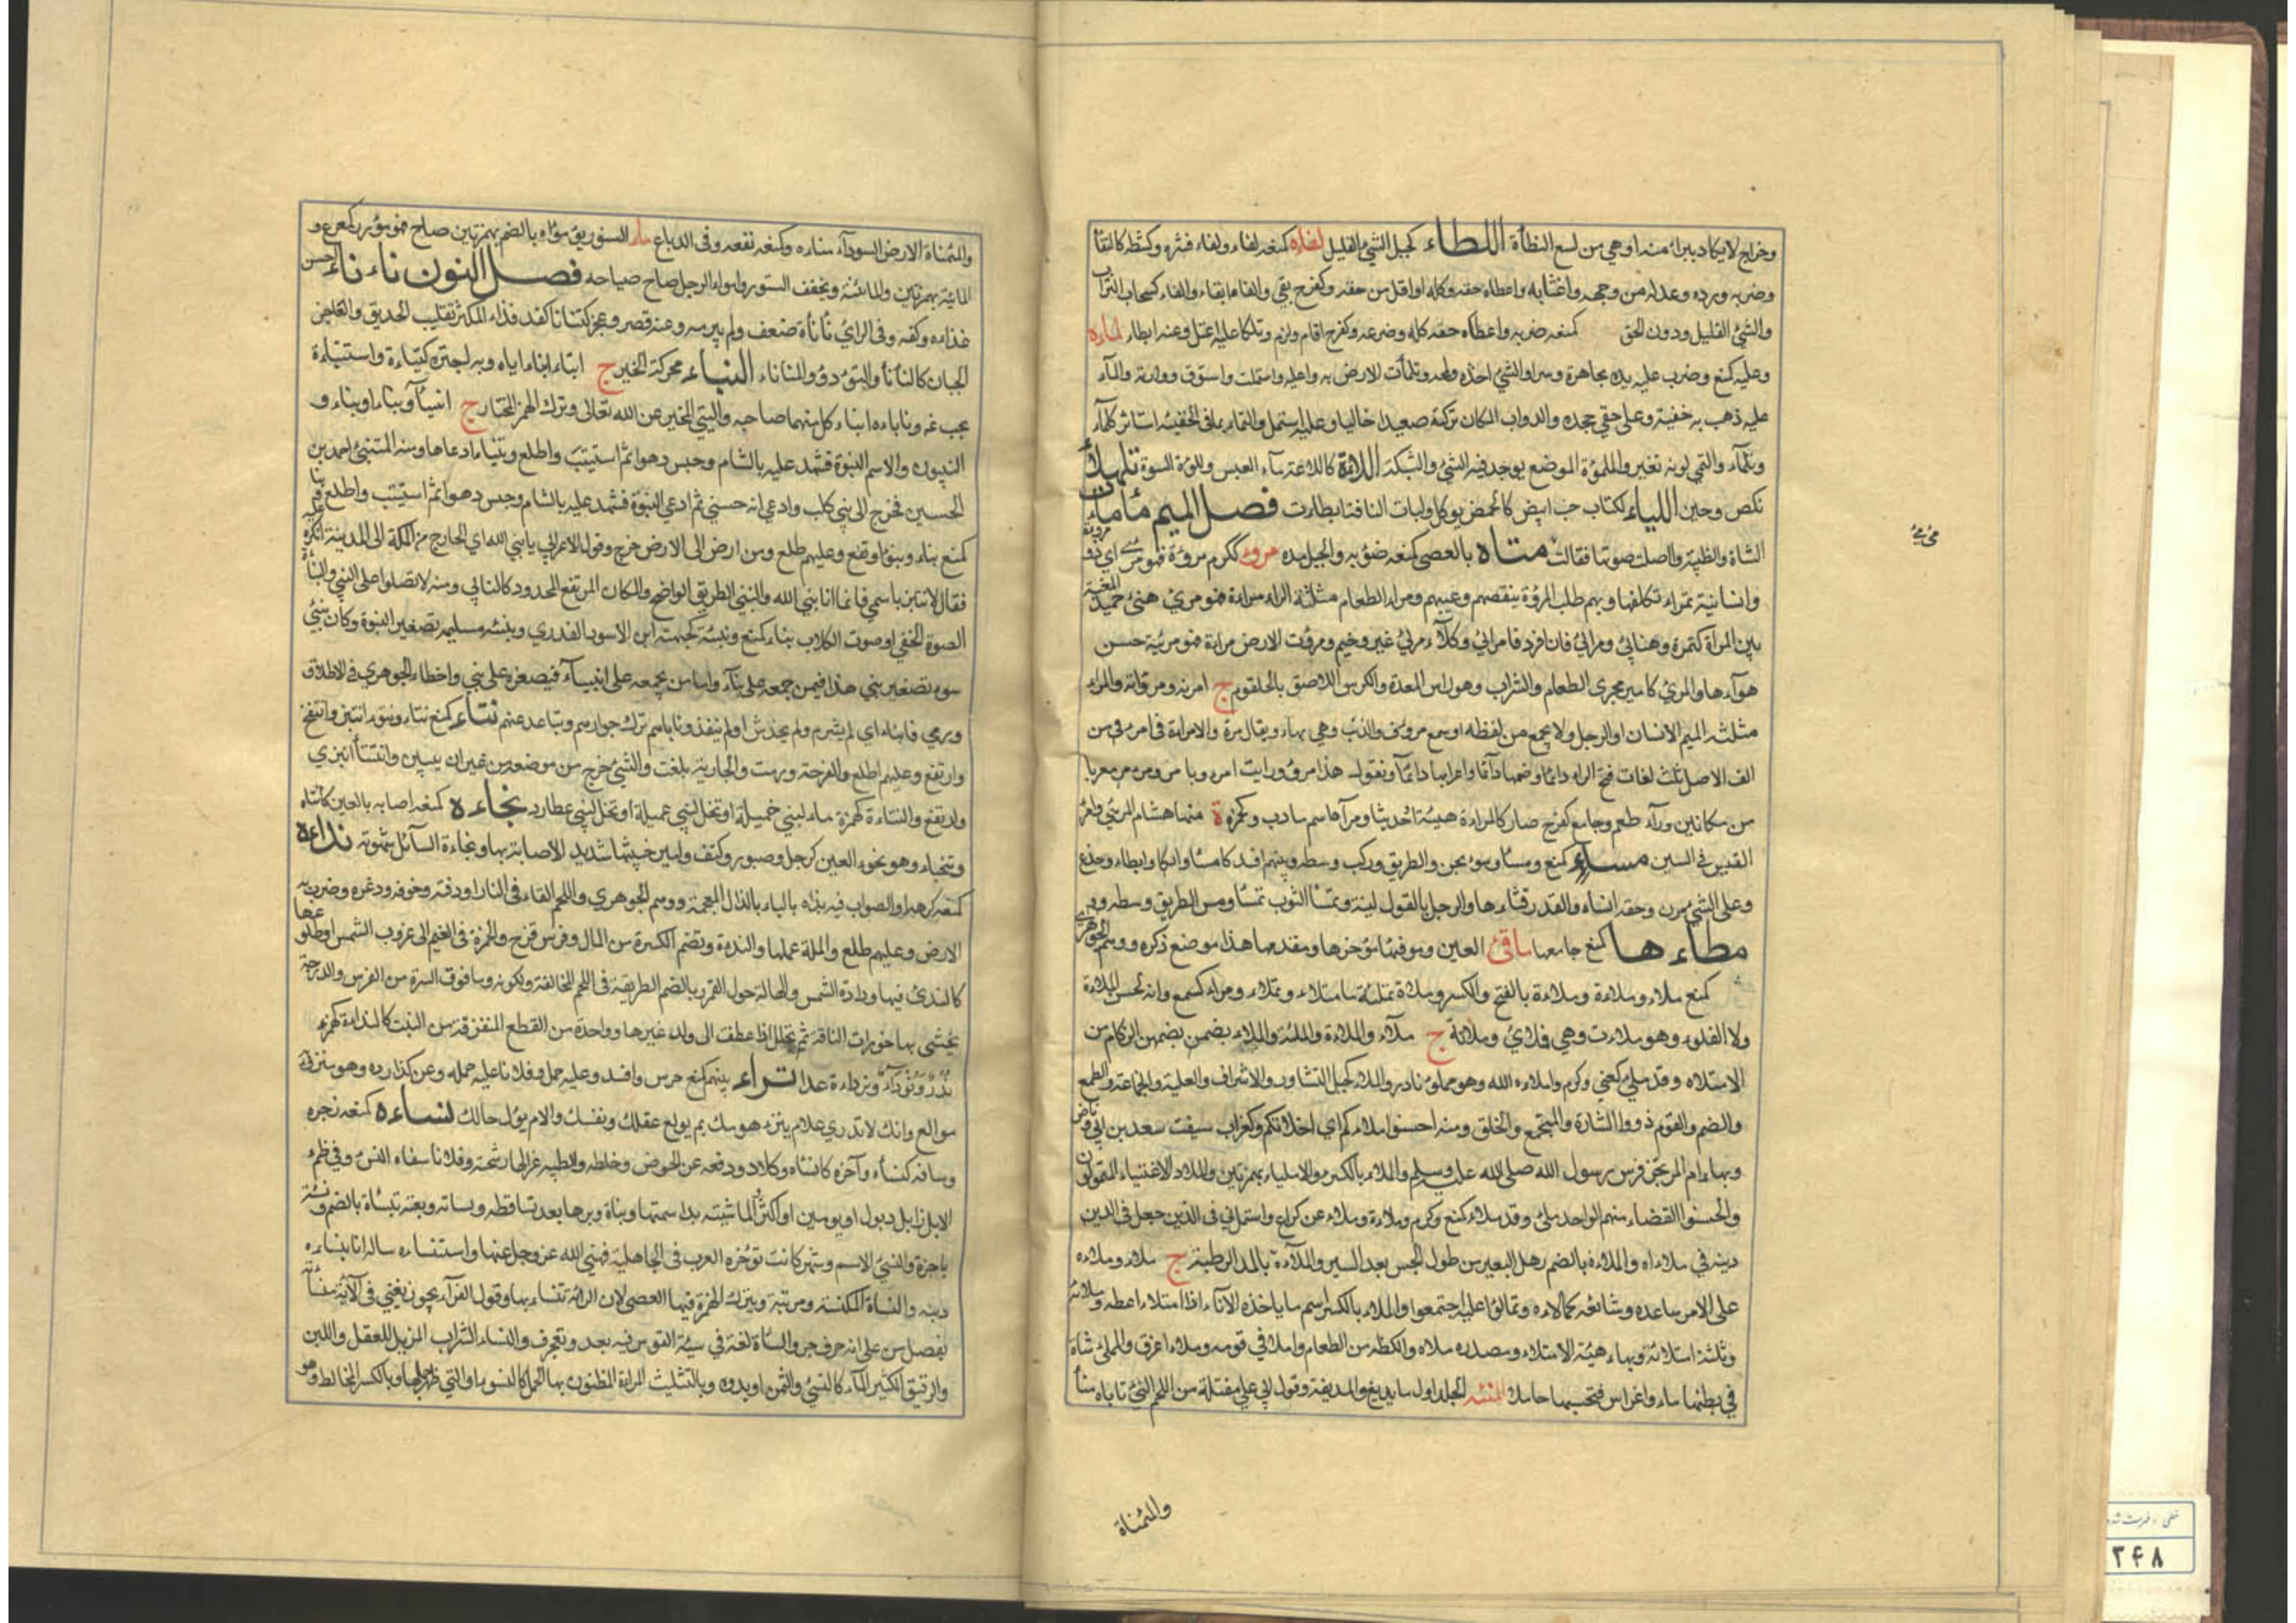 وخراج لايكاد يبرا منه اوهي من لسع النطأة اللطاء كجبل الشئ القليل لفاه كمنعه لفاء ولفاء فشره وكشطه كالتفأ
وضربه ورده وعدله من وجهه واغتابه واعطاه حقه وكله اواقل من حقه وكفرح بقي والفاءابقاه والفاء كسحاب التراب
والشئ القليل ودون الحق كمنعه ضربه واعطاه حقه كله وضرعه وكفرح اقام ولزم وتلكا عليه اعتل وعنه ابطاء لماءه
وعليه كمنع وضرب عليه يده مجاهرة وسرا والشئ اخذه ولمحه وتلمأت الارض به واعليه واستملت واستوت ووارته والمآء
عليه ذهب به خفية وعلى حقي جحده والدواب المكان تركته صعيدا خاليا وعليه استمل والتماء بمافى الخفيه استاثر كالمآء
وتلمآء والتمي لونه تغير والملموة الموضع يوجد فيه الشئ والشبكة اللاءة كاللاعة مآء لعبس واللوءة السوة تلهلأ
نكص وجبن اللياء ككتاب حب ابيض كالحمص يوكل ولبات الناقة ابطارت فصل الميم مأماءت
الشاة والظبية واصلت صوتها فقالت متاه بالعصى كمنعه ضربه والحبل مده مروء ككرم مروءة فهو مرئ اي ذو مروءة
وانسانية تمراء تكلفها وبهم طلب المروءة بنقصهم وعيبهم ومراء الطعام مثلثة الراء مراءة فهو مرئ هنئ حميد المغبة
بين المراة كتمرة وهناني ومراني فان افرد فامراني وكلآء مرئ غير وخيم ومروت الارض مراءة فهو مرئية حسن
هوآءها والمرئ كامير مجرى الطعام والشراب وهو راس المعدة والكرس اللاصق بالحلقوم ج امرئة ومرؤ والمراء
مثلثه الميم الانسان او الرجل ولا يجمع من لفظه اوسمع مرؤن والذئب وهي بهاء ويقال مرة والامراة فى امرئ من
الف الاصل ثلث لغات فتح الراء دائما وضمها دآئما واعرابها دآئما وتقول هذا مرؤ ورايت امرء وبامرء معربا
من مكانين ورآء طعم وجامع كفرح صار كالمراءة هيئة اوحديثا ومرآء اسم مادب وكحمزة ة منها هشام المرئي وامرؤ
القيس فى السين مساء كمنع ومسا ومسوء مجن والطريق ركب وسطه وبينهم افسد كامسا وابكا وابطاء وخدع
وعلى الشئ مرن وحقه انساه والقدر فثاءها والرجل بالقول لينه وتمسا الثوب تمسا ومس الطريق وسطه ود
مطاءها كمنع جامعها ماقئ العين وموقئها مؤخرها ومقدمها هذا موضع ذكره ووهم الجوهري
كمنع ملاء وملاءة وملاءة بالفتح والكسر وملاة تملئة فامتلاء وتملاء ومراء كسمع وانه لحسن الملاءة
ولا التملوء وهو ملاءت وهي ملاىُ وملاءنة ج ملآء والملاءة والملئة والملاء بضمن بضمهن الزكام من
الامتلاه وقد ملئ كعني وكرم واملاءه الله وهو مملؤ نادر والملاء كجبل التشاور والاشراف والعلية والجماعة والطمع
والضم والقوم ذووا الشارة والمجتمع والخلق ومنه احسنوا املاءكم اى اخلاقكم وكغراب سيف سعد بن ابي وقاص
وبهاء ام المرتجز فرس رسول الله صلى الله عليه وسلم والملاء بالكسر والاملياء بهمزتين والملاء الاغنياء المتمولون
والحسنوا القضاء منهم الواحد ملئ وقد ملاء كمنع وكرم وملاءة وملاء عن كراع واستملا في فى الدين جعل فى الدين
دينه في ملاءاه والملاءة بالضم رهل البعير من طول الحبس بعد السير والملآءة بالمد الريطة ج ملاء وملاءه
على الامر ساعده وشايعه كمالاءه وتمالؤا عليه اجتمعوا والملاء بالكسر اسم ما ياخذه الآناء اذا امتلاء اعطه وملائه
وثلثة املائه وبهاء هيئة الامتلاء ومصدره ملاه والكظه من الطعام واملا في قوسه وملاء اغرق والملئ شاة
في بطنها ماء واغراس فتحسبها حاملا المنئه الجلد اول ما يدبغ والمديغة وقول ابي علي مفعلة من اللحم النئ تاباه منأ
والمئناة
مح بيه
والمئناة الارض السودآء مناءه وكمنعه نقعه وفى الدباغ ماء السنور يموء مؤاء بالضم بهمزتين صاح فهو مؤء كمعوع و
المائية بهمزتين والمائئة ويخفف السنور واموءا الرجل صاح صياحه فصل النون ناءناء احسن
غذاءه وكفه وفى الرأي نأنأة ضعف ولم يبرمه وعنه قصر وعجز كتناناكفد فذاء المكثر تقليب الحديق والعاجز
الجبان كالنأنأ والنؤدؤ والمناناء النباء محركة الخبر ج انباء انباء اياه وبه اخبره كنباءة واستنباءة
بحب عنه ونابأه انباء كل منهما صاحبه والنبي المخبر عن الله تعالى وترك الهمز المختار ج انبيآ ونباء وانباء و
النبيون والاسم النبوة فشهد عليه بالشام وحبس دهرا ثم استتيب واطلع وتنباء ادعاها ومنه المتنبئ احمد بن
الحسين فخرج الى بني كلب وادعى انه حسني ثم ادعى النبوة فشهد عليه بالشام وحبس دهرا ثم استتيب واطلع ونبا
كمنع نباء ونبوءا وقع وعليهم طلع ومن ارض الى الارض خرج وقول الاعرابي يا نبي الله اي الخارج من المكة الى المدينة انكره عليه
فقال لاتنبز باسمي فانما انا نبي الله والنبئ الطريق الواضح والمكان المرتفع المحدود كالنابي ومنه لاتصلوا على النبي والنبأة
الصوت الخفي او صوت الكلاب نباء كمنع ونبئة كجهينة ابن الاسود العذري ونبئة مسيلمه تصغير النبوة وكان نبئ
سوء تصغير نبئ هذا فيمن جمعه على نبآء واما من يجمعه على انبياء فيصغره على نبي واخطاء الجوهري فى الاطلاق
ورمي فانباء اي لم يشرم ولم يخدش او لم ينفذ ونابأهم ترك جوارهم وتباعد عنهم نتاء كمنع نتاء ونتوء انتبز وانتفخ
وارتفع وعليهم اطلع والقرحة ورمت والجارية بلغت والشئ خرج من موضعه من غير ان يبين وانتتأ انبرى
وارتفع والنتاءة كهمزة ماء لبني عميلة او نخل لبني عطارد نجاءه كمنعه اصابه بالعين كانتجاه
وتنجاء وهو نجوء العين كرجل وصبور وكتف وامير خبيثها شديد الاصابة بها ونجاءة السآئل شهوته نداءه
كمنعه كرهه والصواب فيه بذاءه بالباء بالذال المعجمة ووهم الجوهري واللحم القاه فى النار او دفنه وخوفه ودعره وضرب به
الارض وعليهم طلع والملة عملها والندءة وتضم الكثرة من المال وقوس قزح والحمرة فى الغيم الى غروب الشمس اوطلوعها
كالندئ فيها ودارة الشمس والهالة حول القمر وبالضم الطريقة فى اللحم المخالفة لونه وما فوق السرة من الفرس والدرجة
يحشى بها خوران الناقة ثم تخلل اذا عطفت الى ولد غيرها وواحدة من القطع المتفرقة من النبت كالنداءة كهمزة
نُدَأٌ ونودآء ونوداءة عدا نزاء بينهم كمنع حرش وافسد وعليه حمل وفلانا عليه حمله وعن كذا رده وهو منزوءٌ
مولع وانك لاتدري علام ينزء هرمك بم يولع عقلك ونفسك والام يؤل حالك نساءه كمنعه زجره
وساقه كنسأه وآخره كانساه وكلاء ودفعه عن الحوض وخلطه والظبية غزالها رشحته وفلانا سقاه النسء وفي ظمء
الابل زاد يوما او يومين او اكثر والماشية بدا سمنها ونبات وبرها بعد تساقطه ونسأته وبعته نسأة بالضم ونسئة
باخرة والنسئ الاسم وشهر كانت تؤخره العرب فى الجاهلية فنهى الله عز وجل عنها واستنساه ساله ان ينسئه
دينه والنسأة المكنسة ومرتبة وبترك الهمزة فيها العصى لان الدابة تنساء بها وقول الفرآء يجوز يعني فى الآية منسأته
بفصل من على انه حرف جر والسأة لغة في سية القوس فيه بعد وتعجرف والنساء الشراب المزيل للعقل واللبن
والرقيق الكثير المآء كالنسئ والسمن او بدؤه وبالتثليث المراءة المظنون بها الحمل كالنسوء او التي ظهر حملها وبالكسر المخالط وهو
۲۴۸